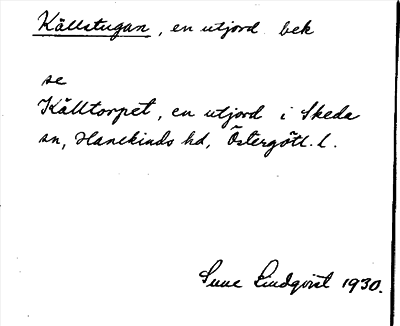 Källstugan, en utjord bek
se
Källtorpet, en utjord i Skeda
sn, Hanekinds hd, Östergötl. l.
Sune Lindqvist 1930.